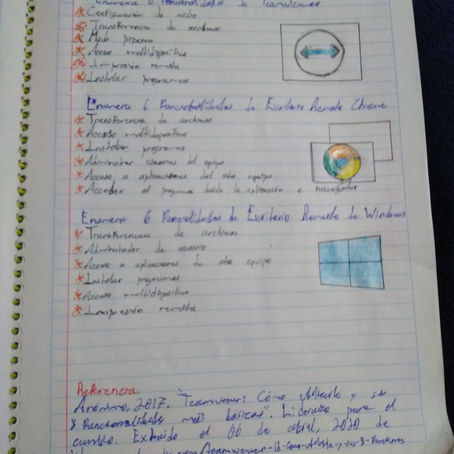 Enumera 6 Funcionalidades de Teamviewer
Configuración de
Transferencia de archivos
Modo pizarra
Acceso multidispositivo
Impresión remota
Instalar programas
Enumera 6 Funcionalidades de Escritorio Remoto Chrome
Transferencia de archivos
Acceso multidispositivo
Instalar programas
Administrar usuarios del equipo
Acceso a aplicaciones del otro equipo
Acceder al programa desde la aplicación o navegador
Enumera 6 Funcionalidades de Escritorio Remoto de Windows
Transferencia de archivos
Administrador de usuarios
Acceso a aplicaciones de otro equipo
Instalar programas
Acceso multidispositivo
Impresión remota
Referencia
Anónimo, 2017. "Teamviewer: Cómo utilizarlo y sus
8 Funcionalidades más básicas". Licencias para el
cambio. Extraído el 06 de abril, 2020 de